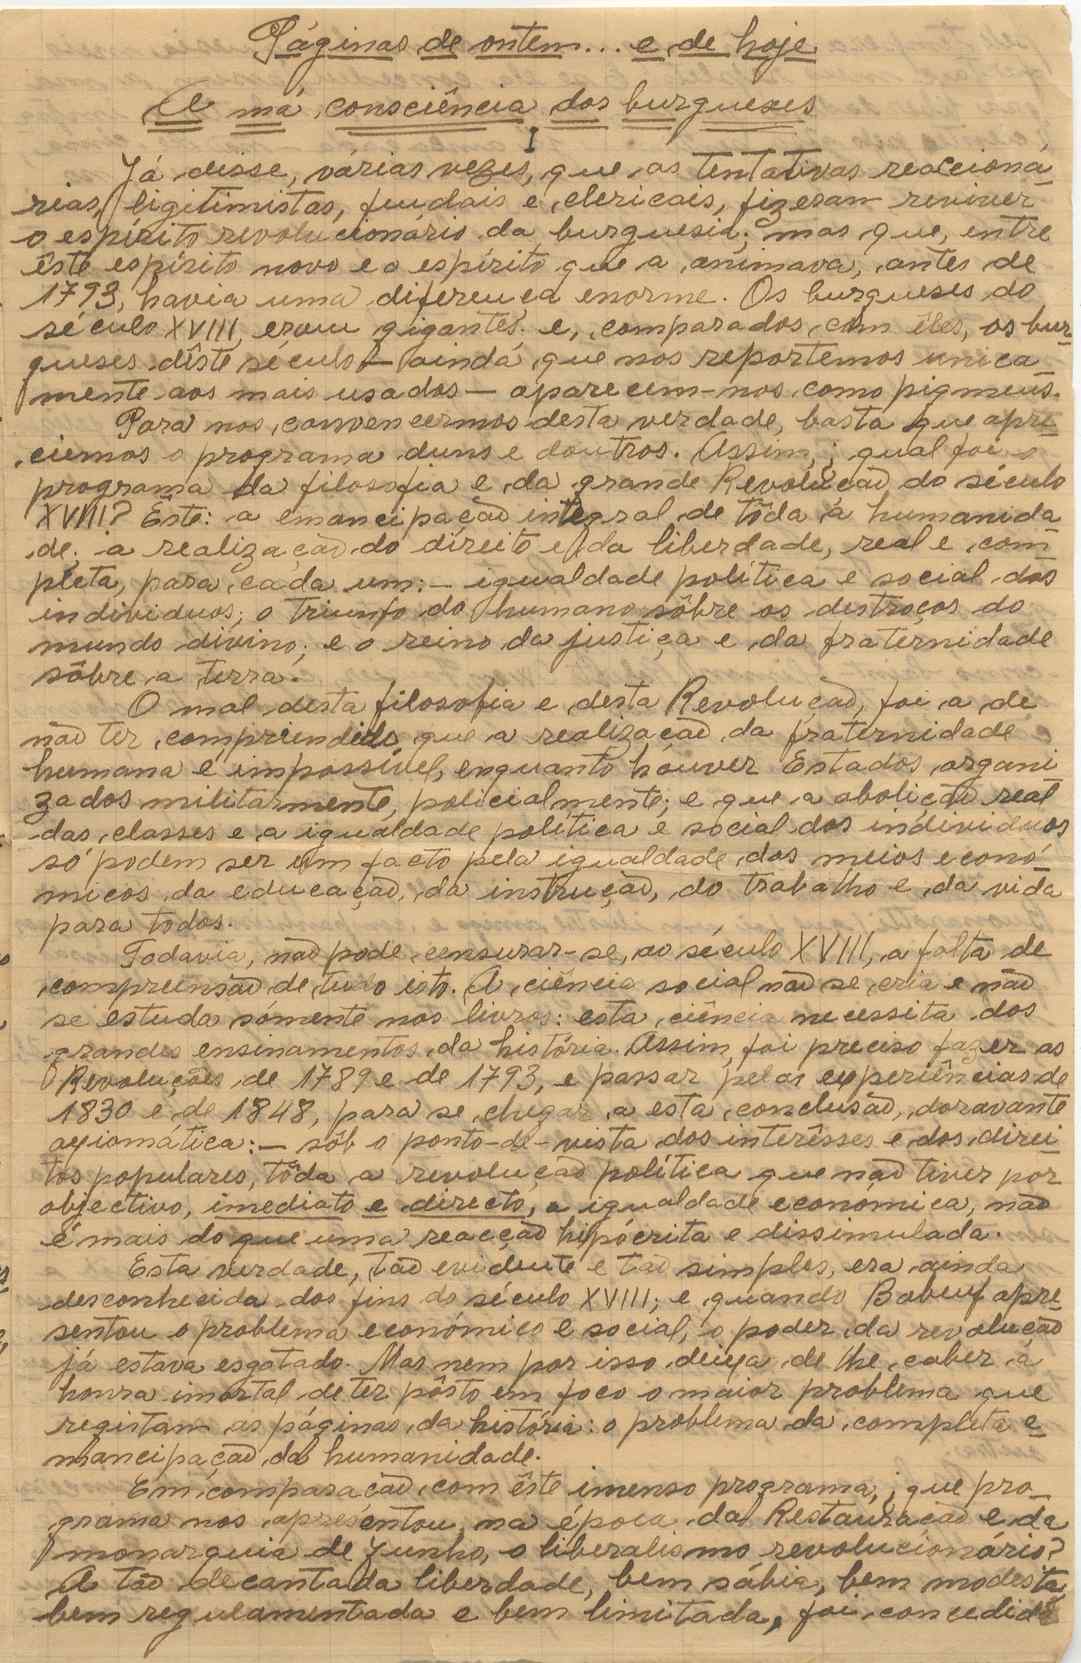 Páginas de ontem... e de hoje
A má consciência dos burgueses
I
Já disse, várias vezes, que as tentativas reacioná-
rias, ligitimistas, feudais e clericais, fizeram reviver
o espírito revolucionário da burguesia; mas que, entre
êste espírito novo e o espírito que a animava, antes de
1793, havia uma diferença enorme. Os burgueses do
século XVIII eram gigantes; e, comparados com êles, os bur-
gueses dêste século — ainda que nos reportemos unica-
mente aos mais usados — aparecem-nos como pigmeus.
Para nos convencermos desta verdade, basta que apre-
ciemos o programa duns e doutros. Assim, ¿qual foi o
programa da filosofia e da grande Revolução do século
XVIII? Êste: a emancipação integral de tôda a humanida
de; a realização do direito e da liberdade, real e com-
pleta, para cada um: — igualdade política e social dos
individuos; o triunfo do humano sôbre os destroços do
mundo divino; e o reino da justiça e da fraternidade
sôbre a terra.
O mal desta filosofia e desta Revolução, foi a de
não ter compreendido que a realização da fraternidade
humana e impossível, enquanto houver Estados organi
zados militarmente, policialmente; e que a abolição real
das classes e a igualdade política e social dos individuos
só podem ser um facto pela igualdade dos meios econó-
micos da educação, da instrução, do trabalho e da vida
para todos.
Todavia, não pode censurar-se, ao século XVIII, a falta de
compreensão de tudo isto. A ciência social não se cria e não
se estuda sómente nos livros: esta ciência necessita dos
grandes ensinamentos da história. Assim, foi preciso fazer as
Revoluções de 1789 e de 1793, e passar pelas experiências de
1830 e de 1848, para se chegar a esta conclusão, doravante
axiomática: — sôb o ponto-de-vista dos interêsses e dos direi-
tos populares, tôda a revolução política que não tiver por
objectivo, imediato e directo, a igualdade economica, não
é mais do que uma reacção hipócrita e dissimulada.
Esta verdade, tão evidente e tão simples, era ainda
desconhecida dos fins do século XVIII; e quando Babeuf apre-
sentou o problema económico e social, o poder da revolução
já estava esgotado. Mas nem por isso deixa de lhe caber a
honra imortal de ter pôsto em foco o maior problema que
registam as páginas da história: o problema da completa e
mancipação da humanidade.
Em comparação com êste imenso programa, ¿que pro-
grama nos apresentou, na época da Restauração e da
monarquia de Junho, o liberalismo revolucionário?
A tão decantada liberdade, bem sábia, bem modesta,
bem regulamentada e bem limitada, foi concedida